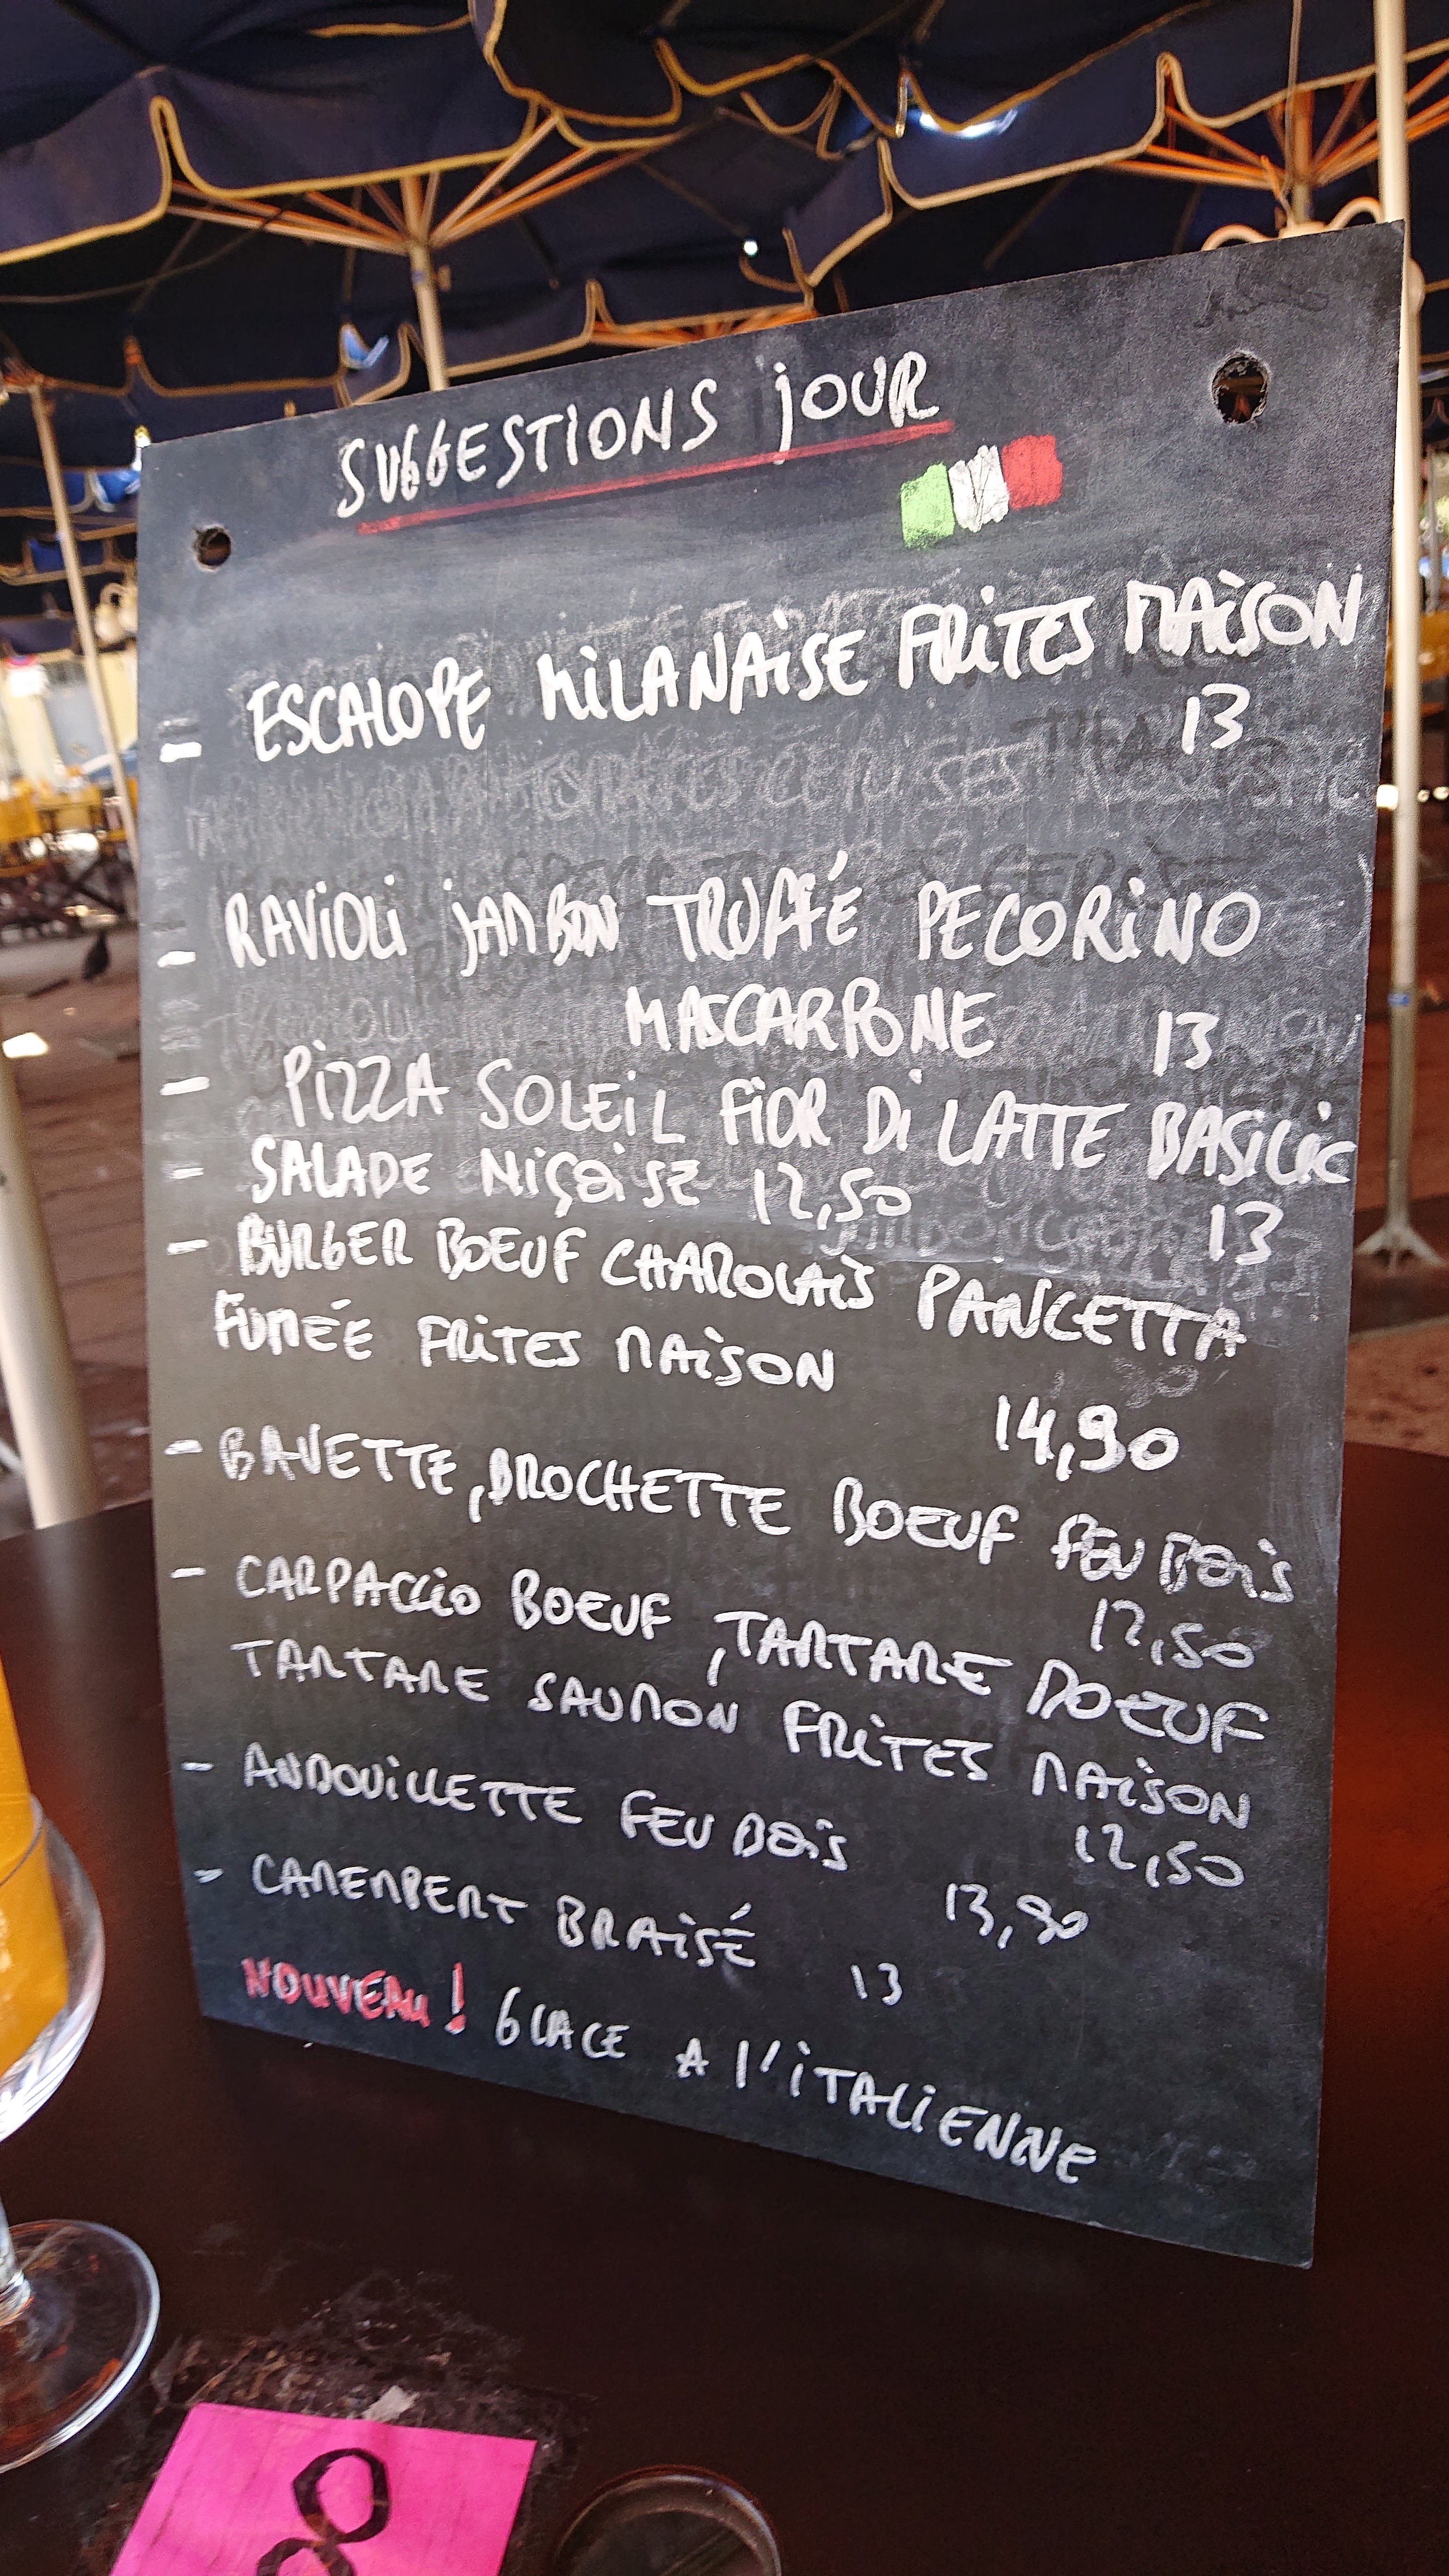 SUGGESTIONS jOUR
- ESCALOPE MILANAISE FRITES MAISON
13
- RAVIOLI jAMBON TRUFFÉ PECORINO
MASCARPONE 13
- PIZZA SOLEIL FIOR DI LATTE BASILIC
13
- SALADE NIÇOISE 12,50
- BURGER BOEUF CHAROLAIS PANCETTA
FUMÉE FRITES MAISON
14,90
- BAVETTE, BROCHETTE BOEUF FEU BOIS
12,50
- CARPACCIO BOEUF, TARTARE BOEUF
TARTARE SAUMON FRITES MAISON
12,50
- ANDOUILLETTE FEU BOIS
13,90
- CAMEMBERT BRAISÉ 13
NOUVEAU! GLACE A l'ITALIENNE
8